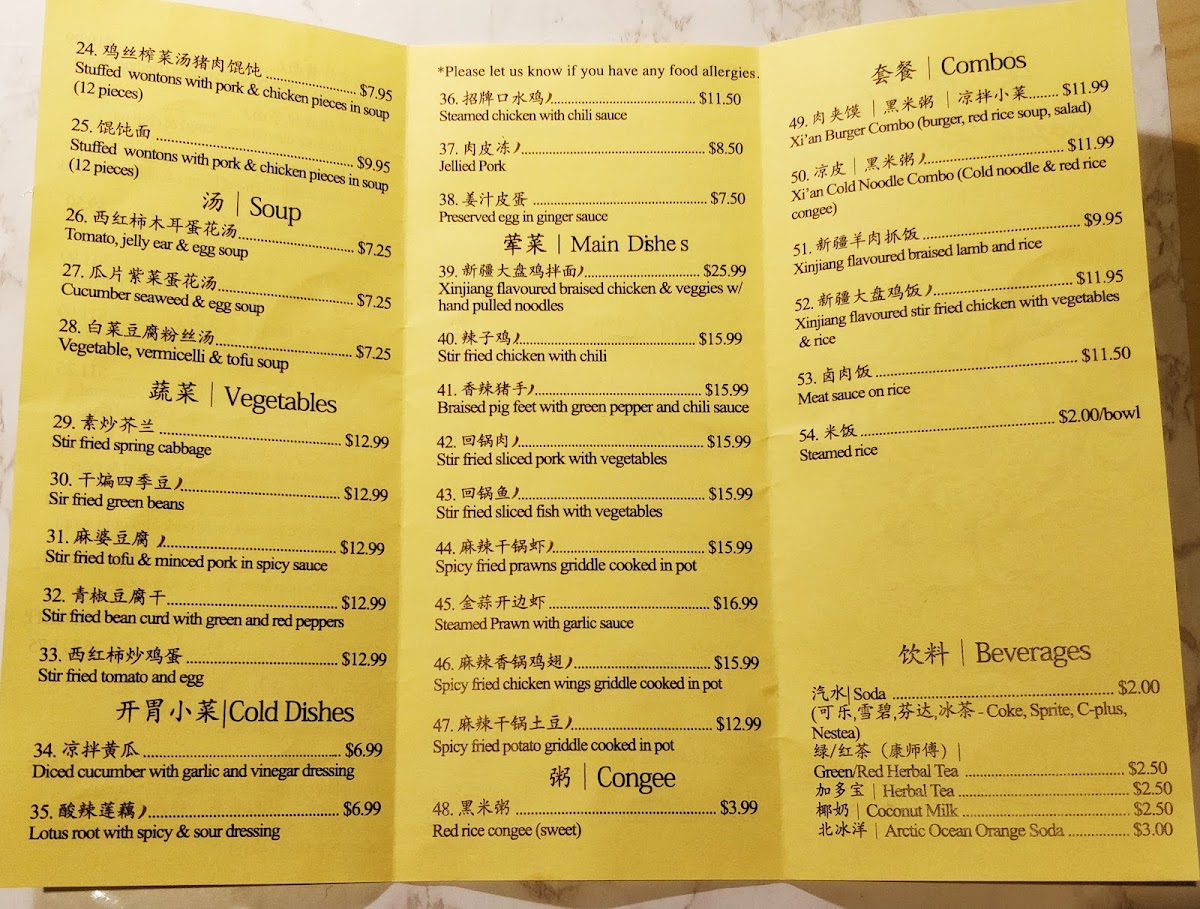 24. 鸡丝榨菜汤猪肉馄饨 ........ $7.95
Stuffed wontons with pork & chicken pieces in soup
(12 pieces)
25. 馄饨面 ........ $9.95
Stuffed wontons with pork & chicken pieces in soup
(12 pieces)
汤 | Soup
26. 西红柿木耳蛋花汤........ $7.25
Tomato, jelly ear & egg soup
27. 瓜片紫菜蛋花汤........ $7.25
Cucumber seaweed & egg soup
28. 白菜豆腐粉丝汤........ $7.25
Vegetable, vermicelli & tofu soup
蔬菜 | Vegetables
29. 素炒芥兰 ........ $12.99
Stir fried spring cabbage
30. 干煸四季豆........ $12.99
Sir fried green beans
31. 麻婆豆腐 ........ $12.99
Stir fried tofu & minced pork in spicy sauce
32. 青椒豆腐干........ $12.99
Stir fried bean curd with green and red peppers
33. 西红柿炒鸡蛋 ........ $12.99
Stir fried tomato and egg
开胃小菜|Cold Dishes
34. 凉拌黄瓜 ........ $6.99
Diced cucumber with garlic and vinegar dressing
35. 酸辣莲藕........ $6.99
Lotus root with spicy & sour dressing
*Please let us know if you have any food allergies.
36. 招牌口水鸡........ $11.50
Steamed chicken with chili sauce
37. 肉皮冻........ $8.50
Jellied Pork
38. 姜汁皮蛋 ........ $7.50
Preserved egg in ginger sauce
荤菜 | Main Dishes
39. 新疆大盘鸡拌面........ $25.99
Xinjiang flavoured braised chicken & veggies w/
hand pulled noodles
40. 辣子鸡........ $15.99
Stir fried chicken with chili
41. 香辣猪手........ $15.99
Braised pig feet with green pepper and chili sauce
42. 回锅肉........ $15.99
Stir fried sliced pork with vegetables
43. 回锅鱼........ $15.99
Stir fried sliced fish with vegetables
44. 麻辣干锅虾........ $15.99
Spicy fried prawns griddle cooked in pot
45. 金蒜开边虾 ........ $16.99
Steamed Prawn with garlic sauce
46. 麻辣香锅鸡翅........ $15.99
Spicy fried chicken wings griddle cooked in pot
47. 麻辣干锅土豆........ $12.99
Spicy fried potato griddle cooked in pot
粥 | Congee
48. 黑米粥 ........ $3.99
Red rice congee (sweet)
套餐 | Combos
49. 肉夹馍 | 黑米粥 | 凉拌小菜........ $11.99
Xi'an Burger Combo (burger, red rice soup, salad)
50. 凉皮 | 黑米粥........ $11.99
Xi'an Cold Noodle Combo (Cold noodle & red rice
congee)
51. 新疆羊肉抓饭 ........ $9.95
Xinjiang flavoured braised lamb and rice
52. 新疆大盘鸡饭........ $11.95
Xinjiang flavoured stir fried chicken with vegetables
& rice
53. 卤肉饭 ........ $11.50
Meat sauce on rice
54. 米饭 ........ $2.00/bowl
Steamed rice
饮料 | Beverages
汽水| Soda ........ $2.00
(可乐,雪碧,芬达,冰茶 - Coke, Sprite, C-plus,
Nestea)
绿/红茶（康师傅）|
Green/Red Herbal Tea ........ $2.50
加多宝 | Herbal Tea ........ $2.50
椰奶 | Coconut Milk ........ $2.50
北冰洋 | Arctic Ocean Orange Soda ........ $3.00